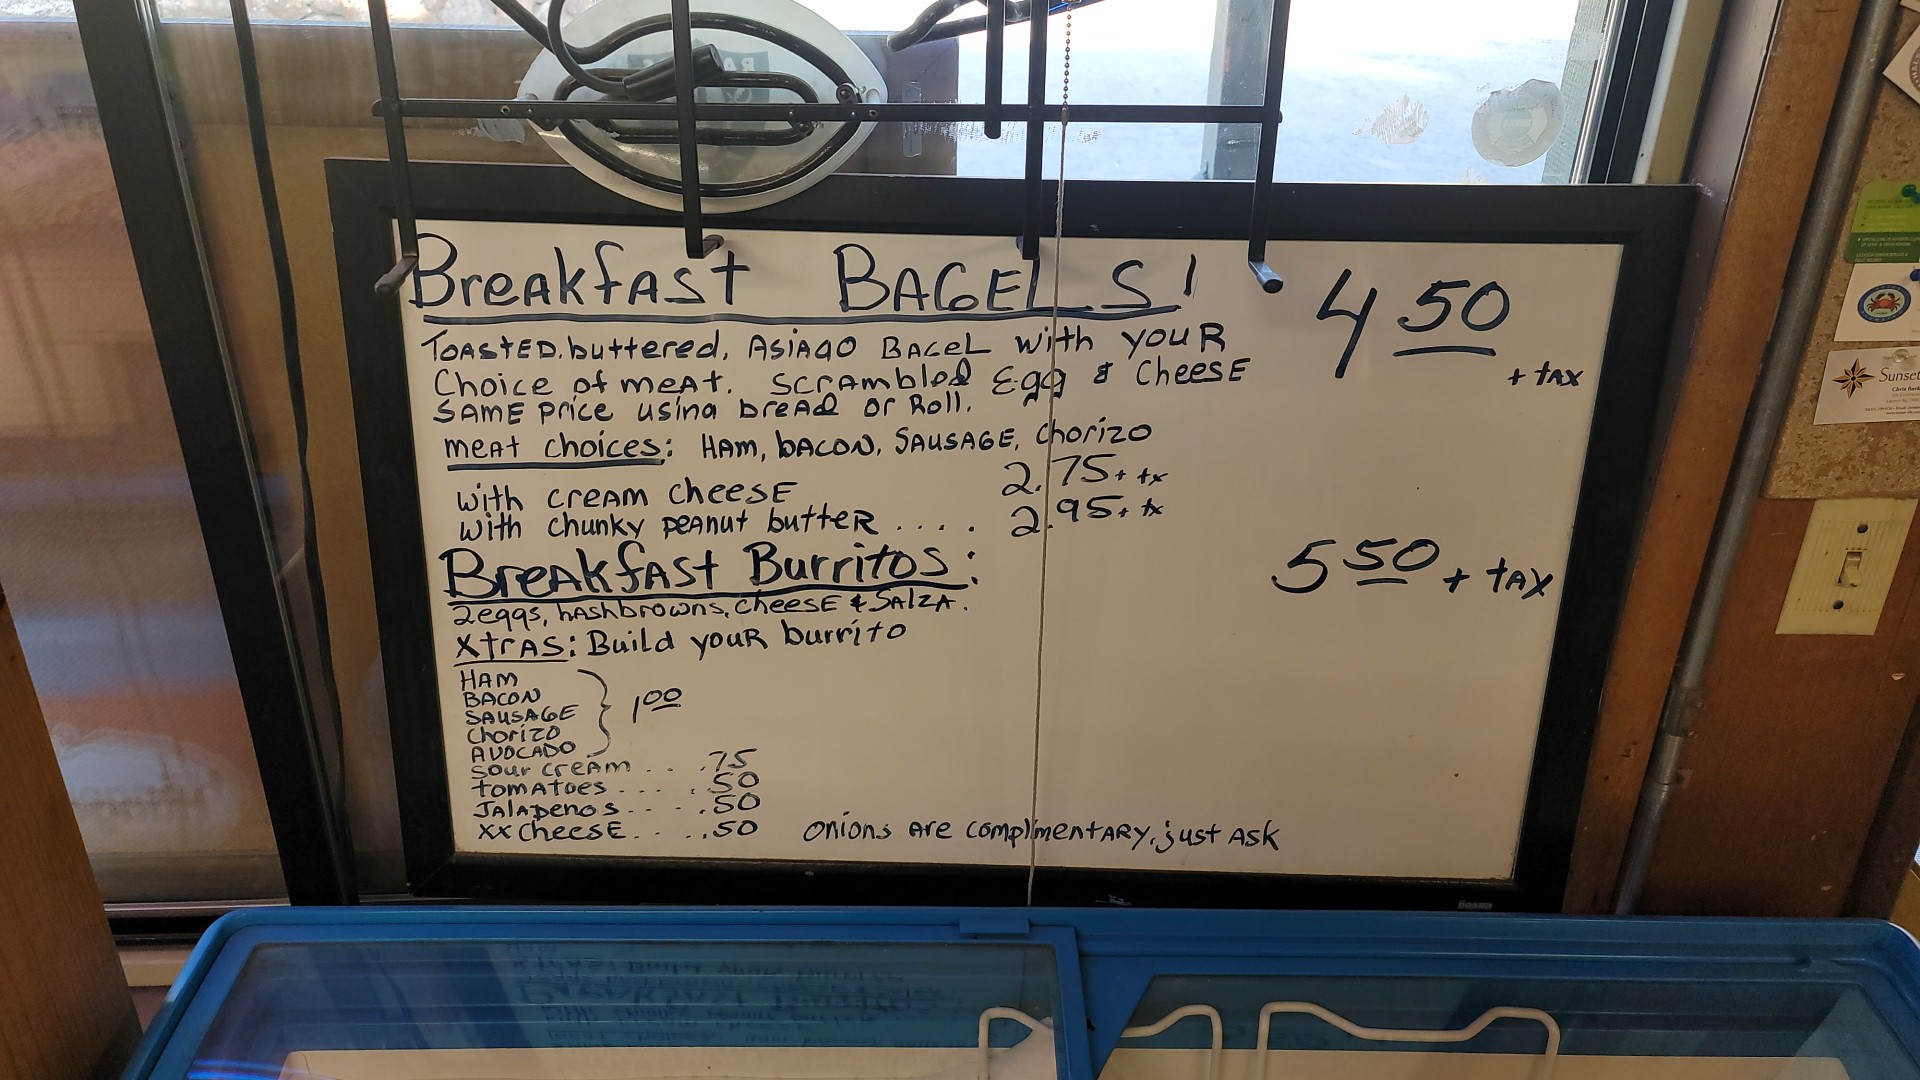 Breakfast BAGELS! 4 50
+ tax
Toasted, buttered, Asiago Bagel with your
Choice of meat. Scrambled Egg & Cheese
Same price using bread or Roll.
meat choices: Ham, bacon, Sausage, Chorizo
with cream cheese 2.75 + tx
with chunky peanut butter .... 2.95 + tx
Breakfast Burritos: 5 50 + tax
2 eggs, hashbrowns, cheese & Salza.
Xtras: Build your burrito
Ham
Bacon
Sausage
Chorizo
Avocado
1 00
sour cream ... .75
tomatoes .... .50
Jalapenos.... .50
xx cheese.... .50 onions are complimentary, just ask
Sunset
BOARD